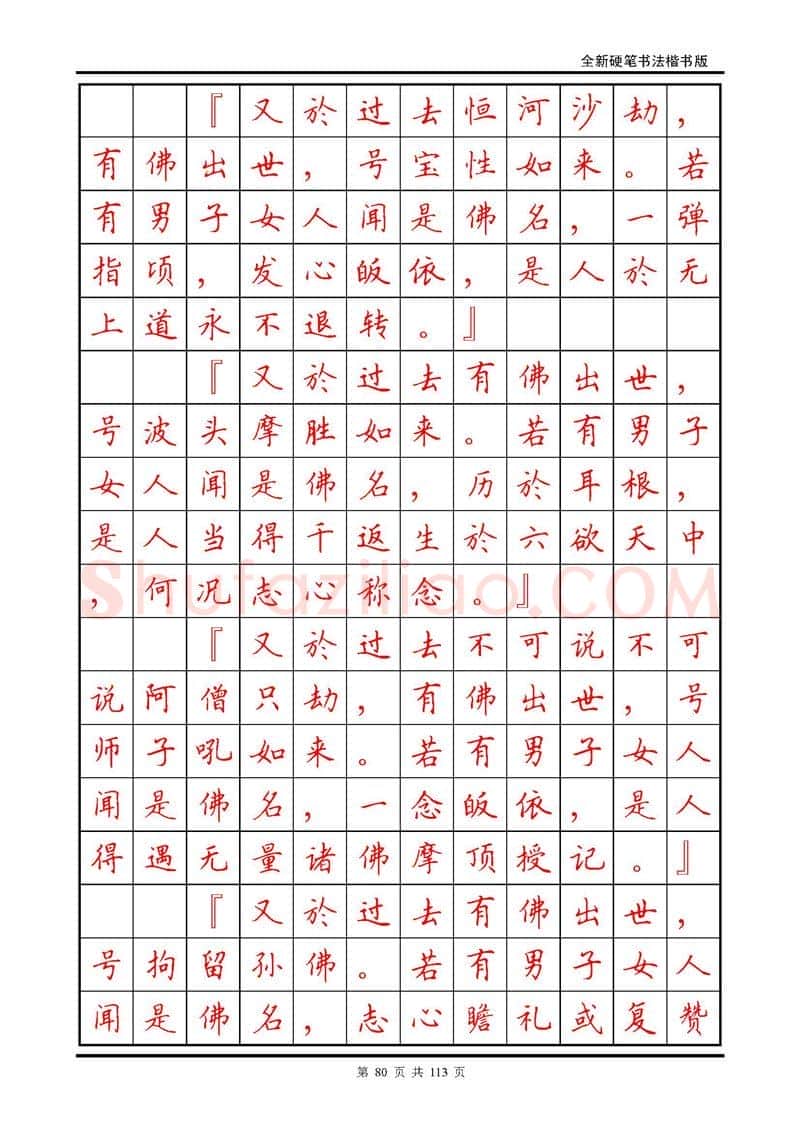 全新硬笔书法楷书版
『又於过去恒河沙劫，
有佛出世，号宝性如来。若
有男子女人闻是佛名，一弹
指顷，发心皈依，是人於无
上道永不退转。』
『又於过去有佛出世，
号波头摩胜如来。若有男子
女人闻是佛名，历於耳根，
是人当得千返生於六欲天中
，何况志心称念。』
『又於过去不可说不可
说阿僧只劫，有佛出世，号
师子吼如来。若有男子女人
闻是佛名，一念皈依，是人
得遇无量诸佛摩顶授记。』
『又於过去有佛出世，
号拘留孙佛。若有男子女人
闻是佛名，志心瞻礼或复赞
Shufaziliao.COM
第 80 页 共 113 页